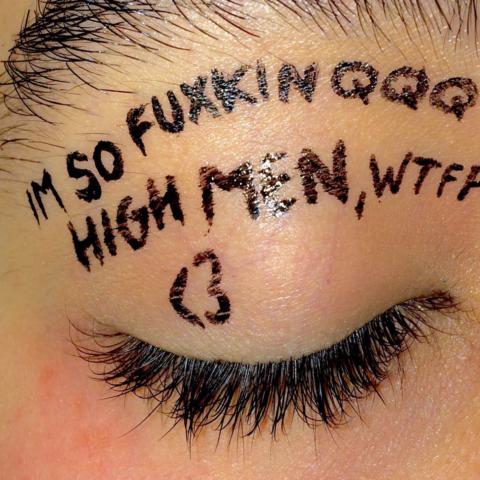 IM SO FUXKIN QQQ
HIGH MEN, WTFF
<3